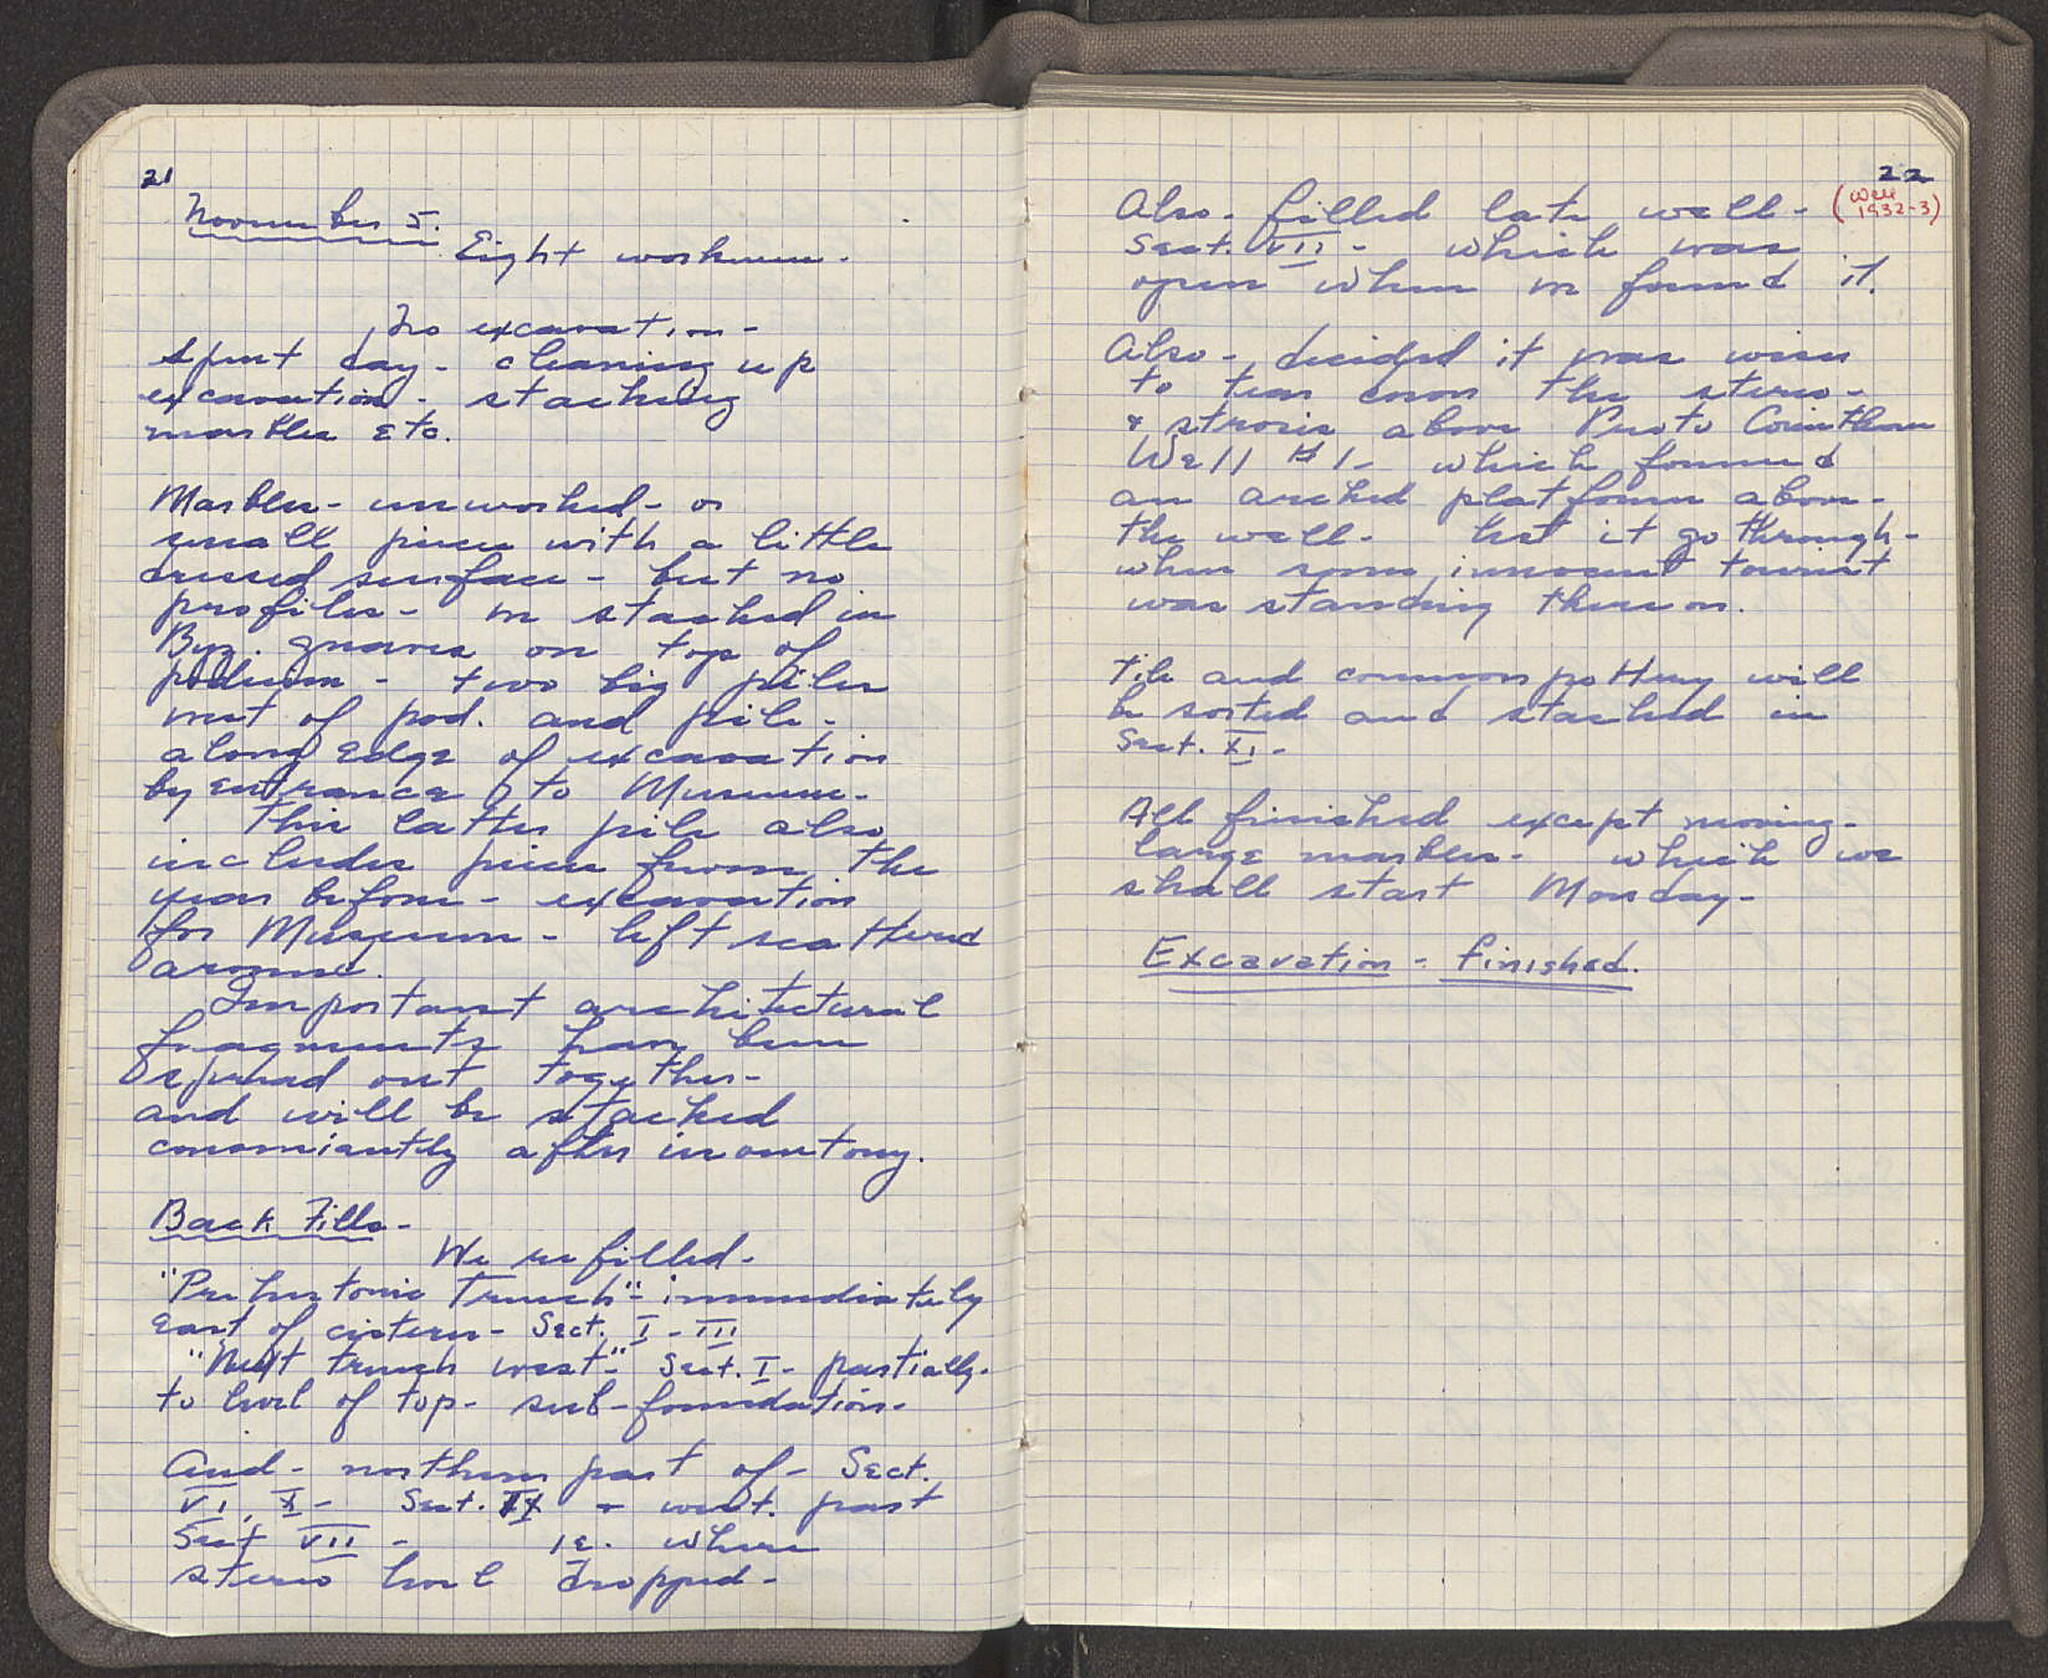 21
November 5.
Eight workmen.
No excavation -
Spent day - cleaning up
excavation - stacking
marbles etc.
Marbles - unworked - or
small pieces with a little
dressed surface - but no
profiles - we stacked in
Byz. graves on top of
podium - two big piles
west of pod. and pile -
along edge of excavation
by entrance to Museum.
This latter pile also
includes pieces from the
year before - excavation
for Museum - left scattered
around.
Important architectural
fragments have been
spread out together -
and will be stacked
conveniently after inventory.
Back Fills -
We refilled -
"Prehistoric Trench" - immediately
East of cistern - Sect. I - III
"Next trench west" - Sect. I - partially -
to level of top - sub-foundation -
And - northern part of - Sect.
VI, X - Sect. IX + west. part
Sect VII - ie. where
stereo level dropped -
22
Also - filled late well - (Well
1932-3)
Sect. VII - which was
open when we found it.
Also - decided it was wise
to tear down the stereo -
& strosis above Proto Corinthian
Well #1 - which formed
an arched platform above -
the well - lest it go through -
when some innocent tourist
was standing thereon.
Tile and common pottery will
be sorted and stacked in
Sect. XI -
All finished except moving -
large marbles - which we
shall start Monday -
Excavation - finished.